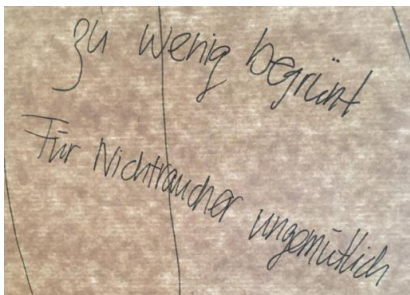 zu wenig begrünt
Für Nichtraucher ungemütlich